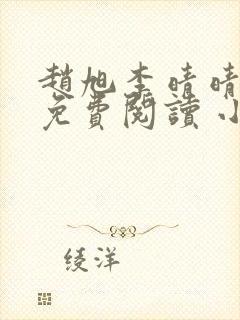 趙旭李晴晴
免費閱讀小
綾洋